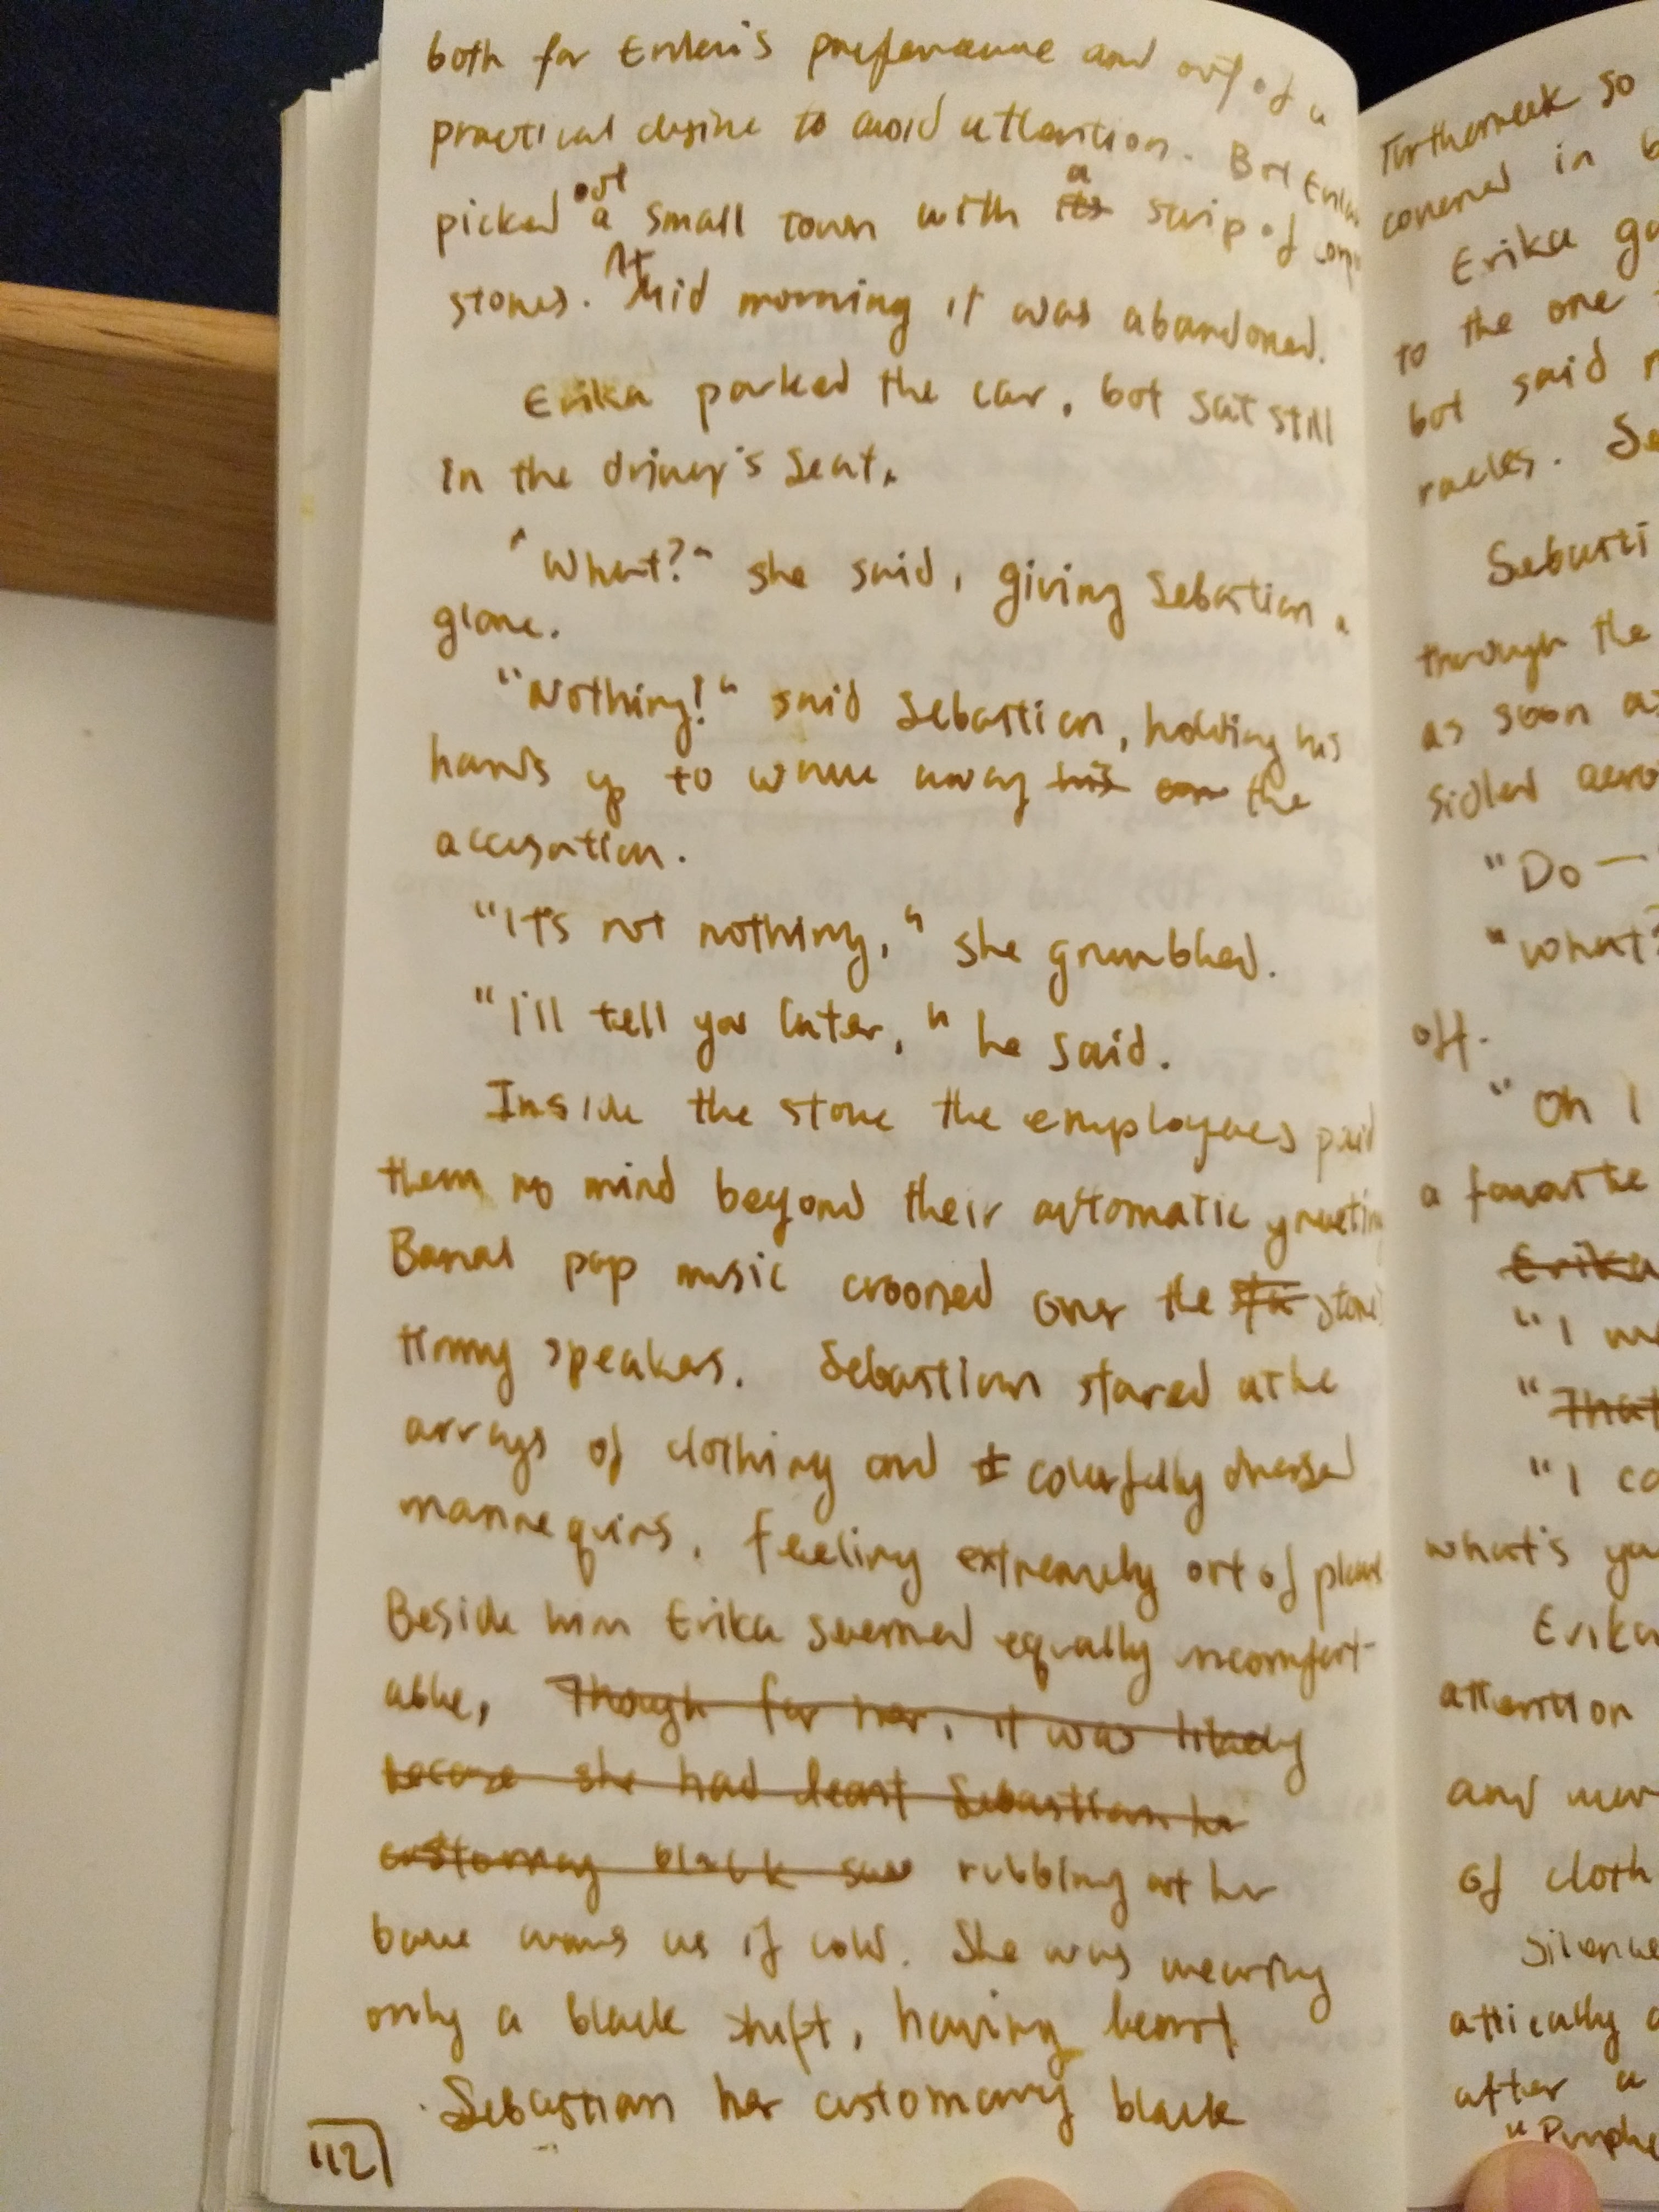 both for Erika's preference and out of a
practical desire to avoid attention. But Erika
picked out a small town with its a strip of
stores. At Mid morning it was abandoned.
Erika parked the car, but sat still
in the driver's seat.
"What?" she said, giving Sebastian a
glare.
"Nothing!" said Sebastian, holding his
hands up to wave away his the
accusation.
"It's not nothing," she grumbled.
"I'll tell you later," he said.
Inside the store the employees paid
them no mind beyond their automatic greeting
Banal pop music crooned over the store
tinny speakers. Sebastian stared at the
arrays of clothing and colorfully dressed
mannequins, feeling extremely out of place.
Beside him Erika seemed equally uncomfort-
able, though for her, it was likely
because she had leant Sebastian her
customary black rubbing at her
bare arms as if cold. She was wearing
only a black shift, having leant
Sebastian her customary black
112
so
covered in b
Erika ga
to the one
but said
Se
Sebasti
through the
as soon as
sidled acro
"Do —
"What?
off.
"Oh I
a favorite
Erika
"I
"That
"I ca
what's you
Erika
attention
and
of cloth
Silence
after a
"Purple